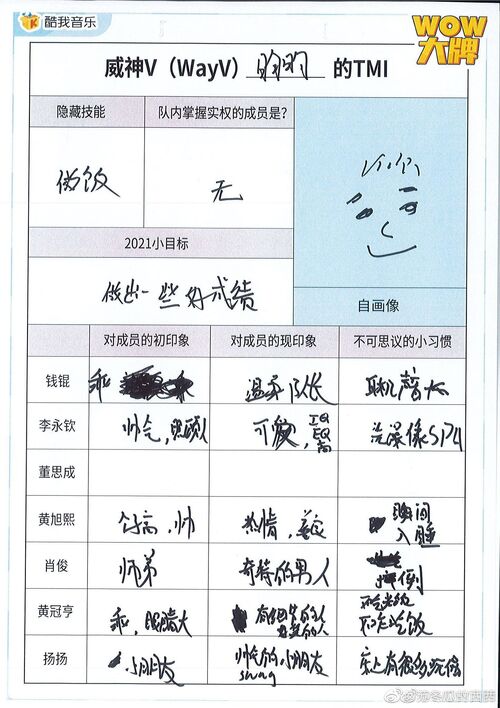 酷我音乐
WOW
大牌
威神V（WayV）昀昀 的TMI
隐藏技能
队内掌握实权的成员是?
做饭
无
2021小目标
做出一些好成绩
自画像
对成员的初印象
对成员的现印象
不可思议的小习惯
钱锟
乖
温柔队长
耳机声大
李永钦
帅气，照顾人
可爱，IQ EQ 高
洗澡像SPA
董思成
黄旭熙
个高，帅
热情，
瞬间
入睡
肖俊
师弟
奇特的男人
黄冠亨
乖，眼睛大
不吃饭
扬扬
小朋友
帅气的小朋友
swag
床上有很多玩偶